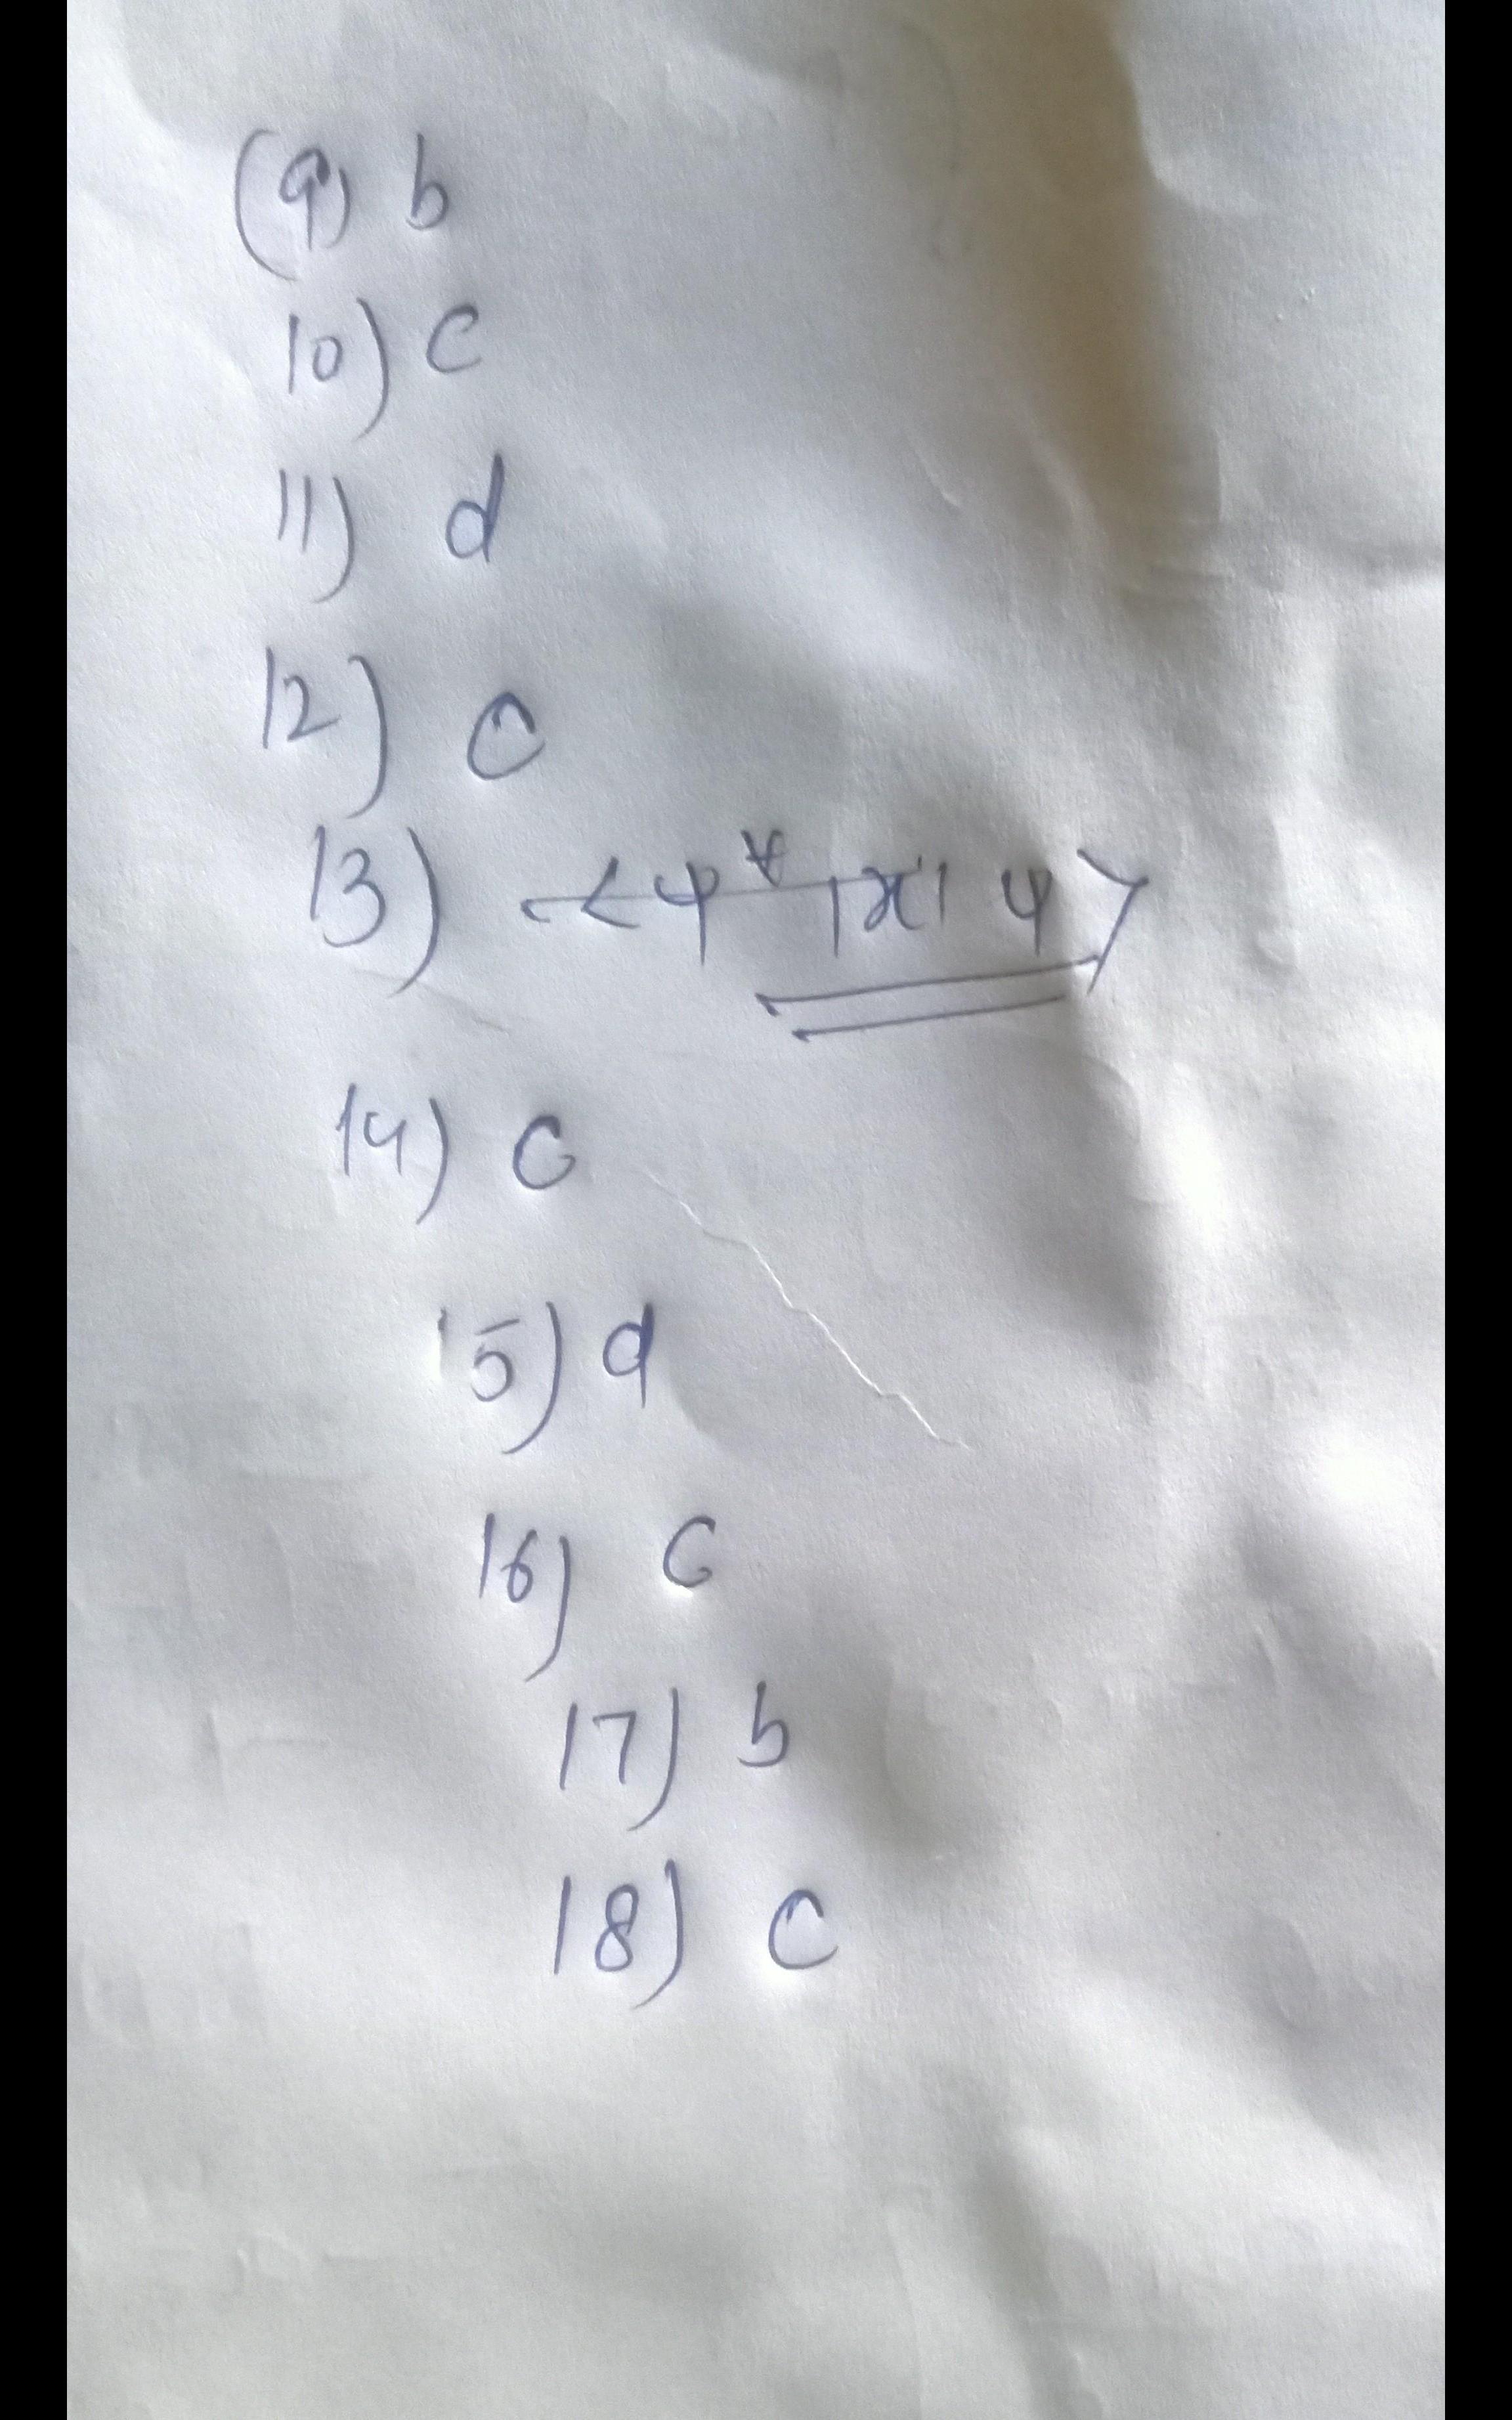 (9) b
10) c
11) d
12) c
13) <ψ* |x| ψ>
14) c
15) d
16) c
17) b
18) c